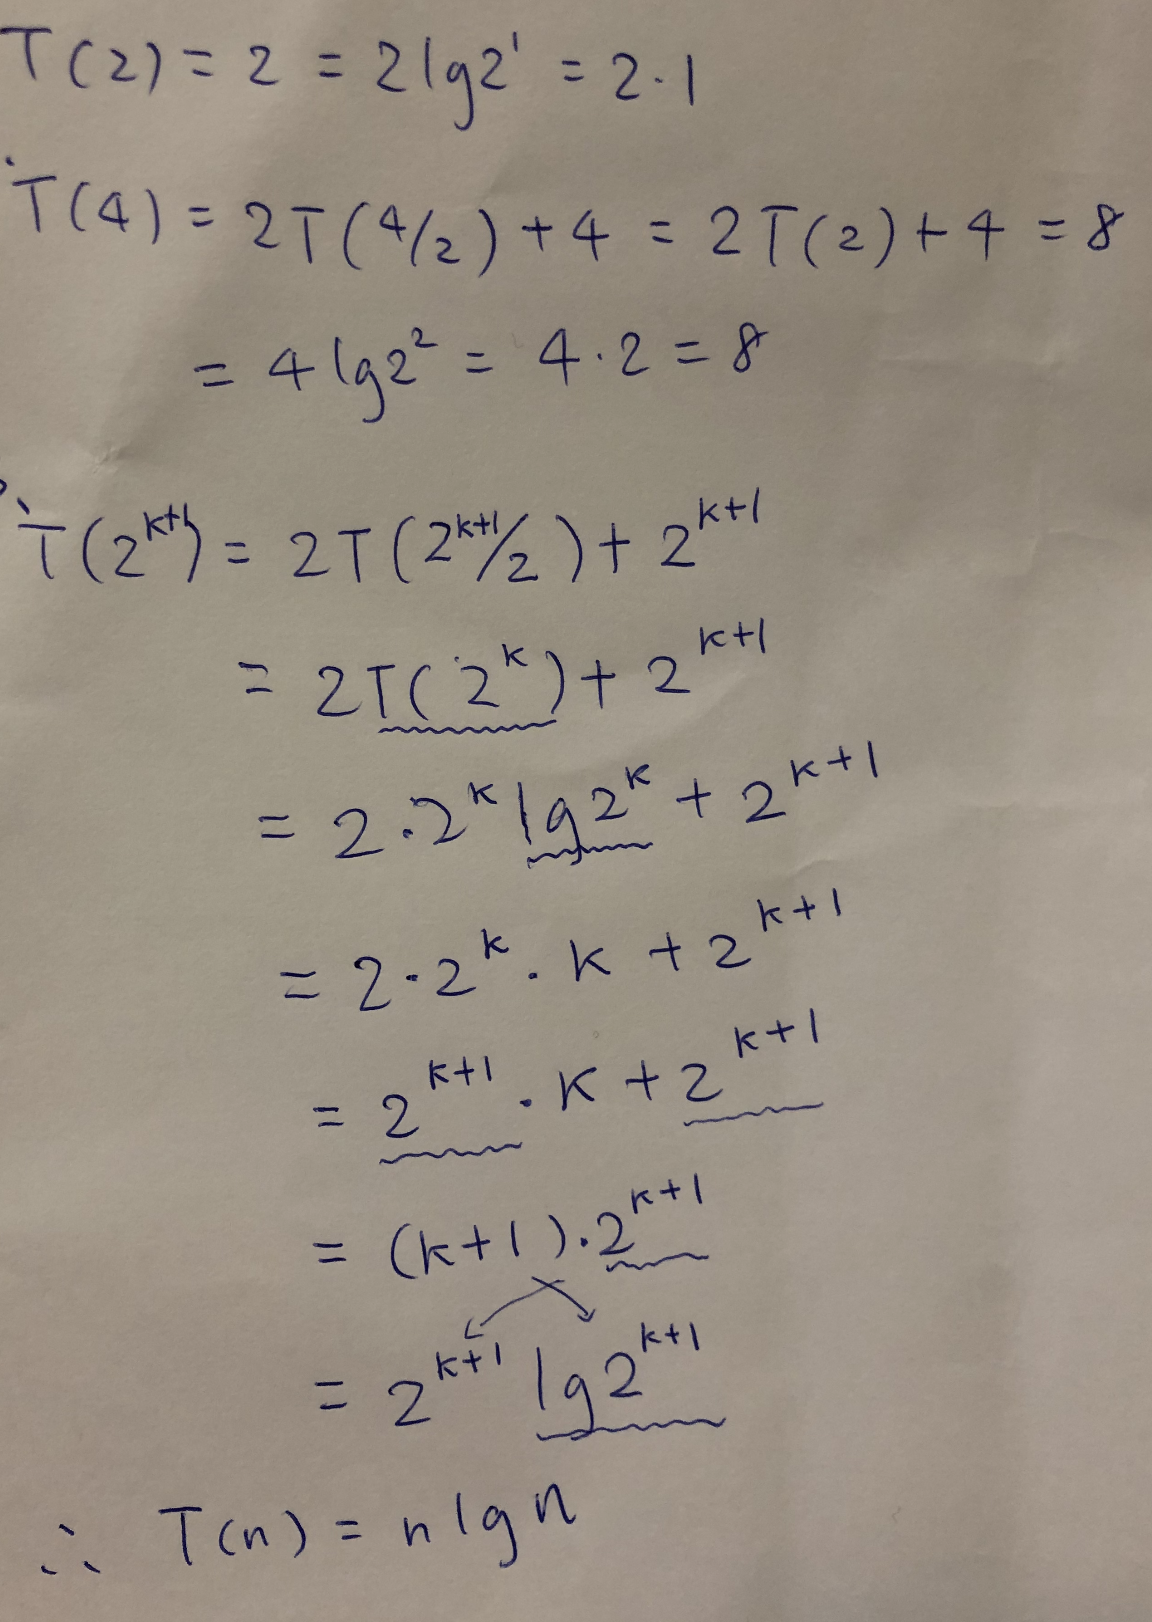 T(2) = 2 = 2lg2¹ = 2·1
T(4) = 2T(4/2) + 4 = 2T(2) + 4 = 8
= 4lg2² = 4·2 = 8
T(2^{k+1}) = 2T(2^{k+1}/2) + 2^{k+1}
= 2T(2^k) + 2^{k+1}
= 2·2^k lg2^k + 2^{k+1}
= 2·2^k·k + 2^{k+1}
= 2^{k+1}·k + 2^{k+1}
= (k+1)·2^{k+1}
= 2^{k+1} lg2^{k+1}
∴ T(n) = nlgn